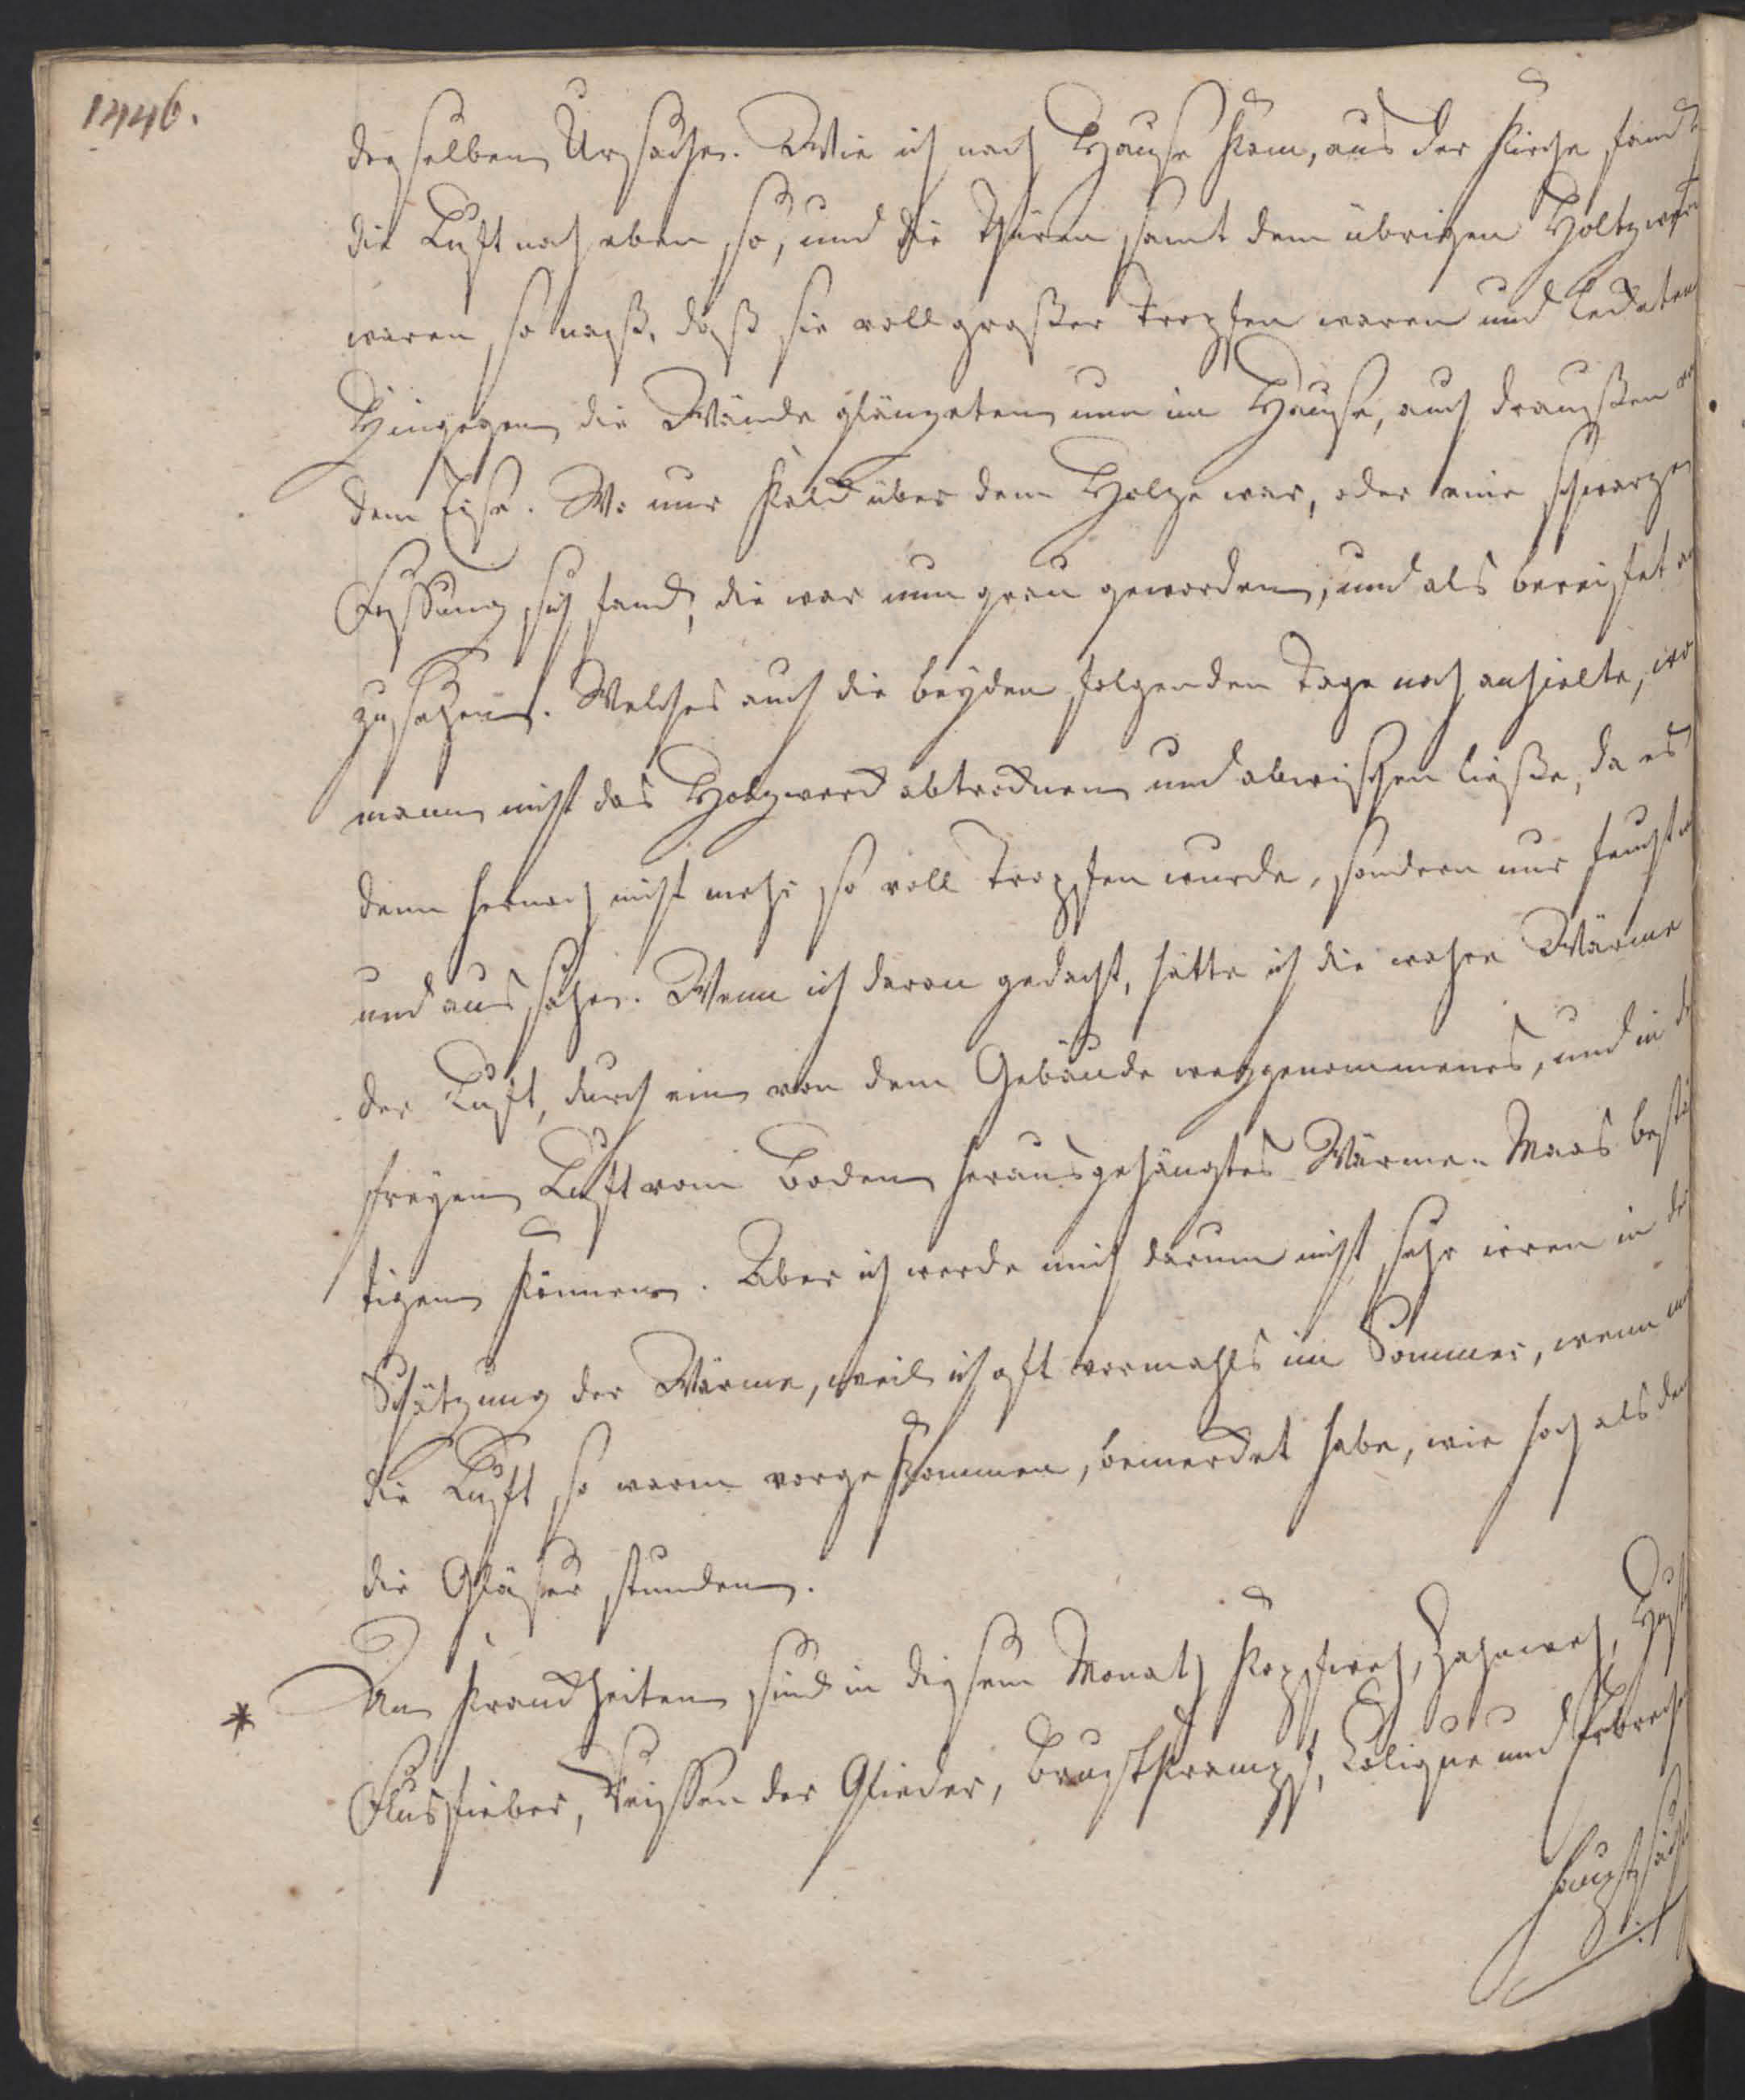 1446.
desselben Ursache. Wie ich nach Hause kam, aus der Kirche, fand
die Luft noch eben so, und die Thüren samt dem übrigen Holtzwerck
waren so naß, daß sie voll großer Tropfen waren und leckten
Hingegen die Wände gläntzeten nun im Hause, auch draußen
dem Eise. Wo nur Kalck über dem Holze war, oder eine schwarze
Fassung sich fand, die war nun grau geworden, und als bereifet
zu sehen. Welches auch die beyden folgenden Tage noch anhielte, wo
mann nicht das Holzwerck abtrocknen und abwischen ließe, da es
denn hernach nicht mehr so voll Tropfen wurde, sondern nur feucht
und aussahe. Wenn ich daran gedacht, hätte ich die wahre Wärme
der Luft, durch ein von dem Gebäude weggenommenes, und in
freyen Luft vom Boden herausgehängtes Wärme-Maas bestä
tigen können. Aber ich werde mich darum nicht sehr irren in der
Schätzung der Wärme, weil ich oft vormahls im Sommer, wenn
die Luft so warm vorgekommen, bemercket habe, wie hoch als denn
die Gläser stunden.
* An Kranckheiten sind in diesem Monath Kopfweh, Zahnweh, Hust
Flusfieber, Reissen der Glieder, Brustkrampf, Colique und Erbrechen
hauptsäch